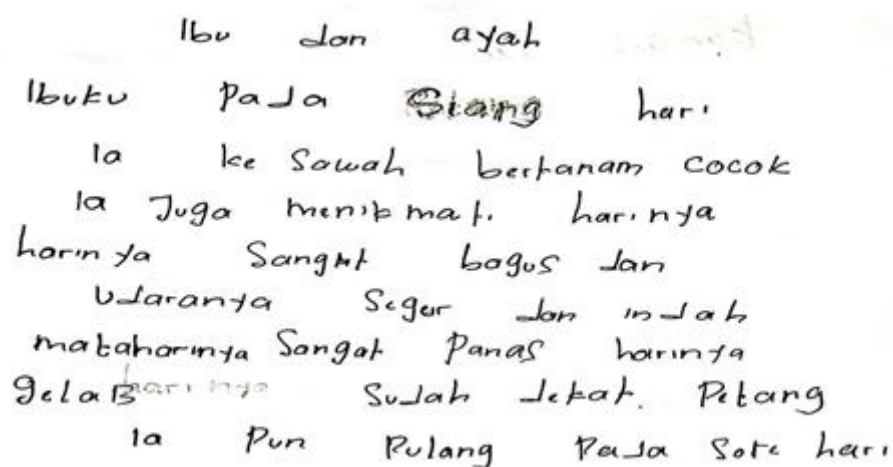 Ibu dan ayah
Ibuku Pada Siang hari
Ia ke Sawah bertanam cocok
Ia Juga menikmati harinya
harinya Sangat bagus dan
Udaranya Segar dan indah
mataharinya Sangat Panas harinya
gelaB harinya Sudah dekat. Petang
Ia Pun Pulang Pada Sore hari